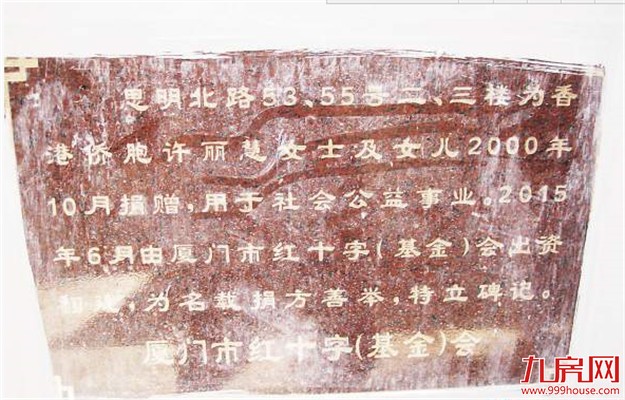 思明北路53、55号二、三楼为香
港侨胞许丽慧女士及女儿2000年
10月捐赠，用于社会公益事业。2015
年6月由厦门市红十字(基金)会出资
为名载捐方善举，特立碑记。
厦门市红十字(基金)会
九房网
www.999house.com